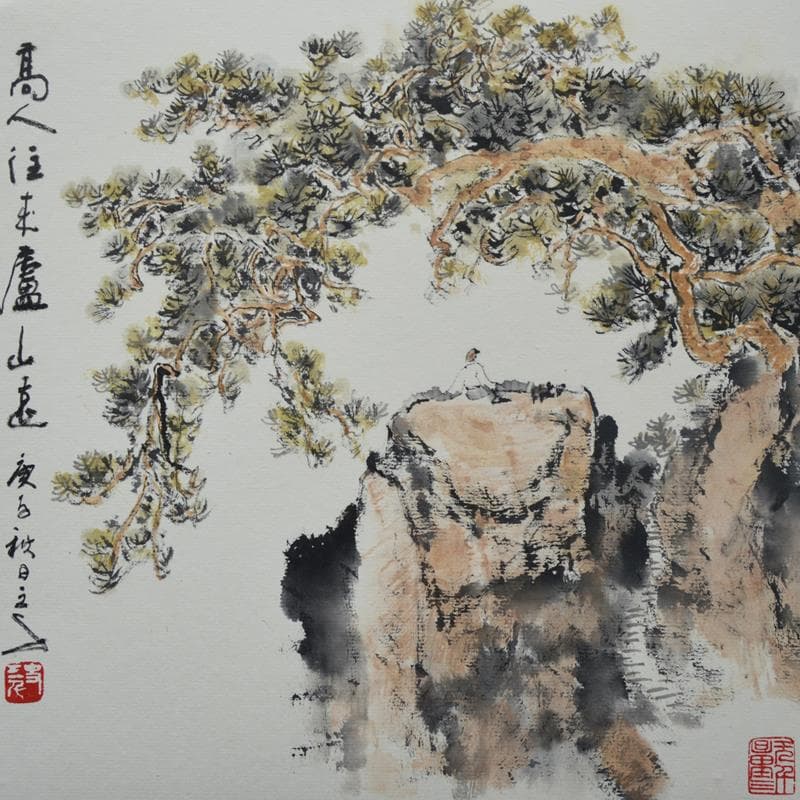 高人往来廬山遠
庚子秋日立人